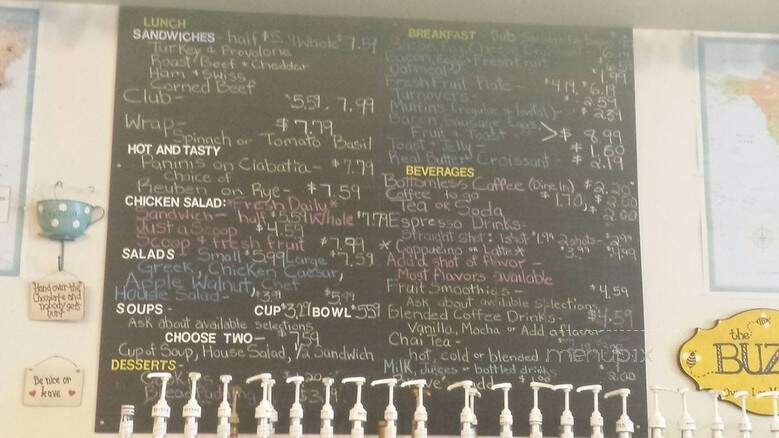 LUNCH
SANDWICHES - half $5. Whole $7.59
Turkey & Provolone
Roast Beef & Cheddar
Ham & Swiss
Corned Beef
Club - $5.59, 7.99
Wrap - $7.79
Spinach or Tomato Basil
HOT AND TASTY
Paninis on Ciabatia - $7.79
Choice of
Reuben on Rye - $7.59
CHICKEN SALAD: *Fresh Daily*
Sandwich - half $5.59 Whole $7.79
Just a Scoop $4.59
Scoop & fresh fruit $7.99
SALADS Small $5.99 Large $7.59
Greek, Chicken Caesar,
Apple Walnut, Chef
House Salad - $3.79 $5.79
SOUPS - CUP $3.29 BOWL $5.59
Ask about available selections
CHOOSE TWO - $7.59
Cup of Soup, House Salad, 1/2 Sandwich
DESSERTS -
Bread Pudding $3.
BREAKFAST
Bacon, Eggs & Fresh Fruit
Oatmeal
Fresh Fruit Plate - $4.19, $6.19
Turnovers - 2.59
Muffins (regular & ) $2.59
Bacon Sausage Eggs
Fruit & Toast > $8.99
Toast & Jelly - $1.60
Real Butter Croissant - $2.19
BEVERAGES
Bottomless Coffee (Dine In) $2.20
Coffee to go $1.70, $2.00
Tea or Soda 2.00
Espresso Drinks -
Straight shot: 1 shot $1.99 2 shots - $2.99
*Cappucino or Latte* $3.99 $4.99
Add a shot of flavor -
Most flavors available
Fruit Smoothies - $4.59
Ask about available selections
Blended Coffee Drinks - $4.59
Vanilla, Mocha or Add a flavor
Chai Tea -
hot, cold or blended
Milk, Juices or bottled drinks 2.00
menupix
Hand over the
Chocolate and
nobody gets
hurt!
Be nice or
leave
the
BUZZ